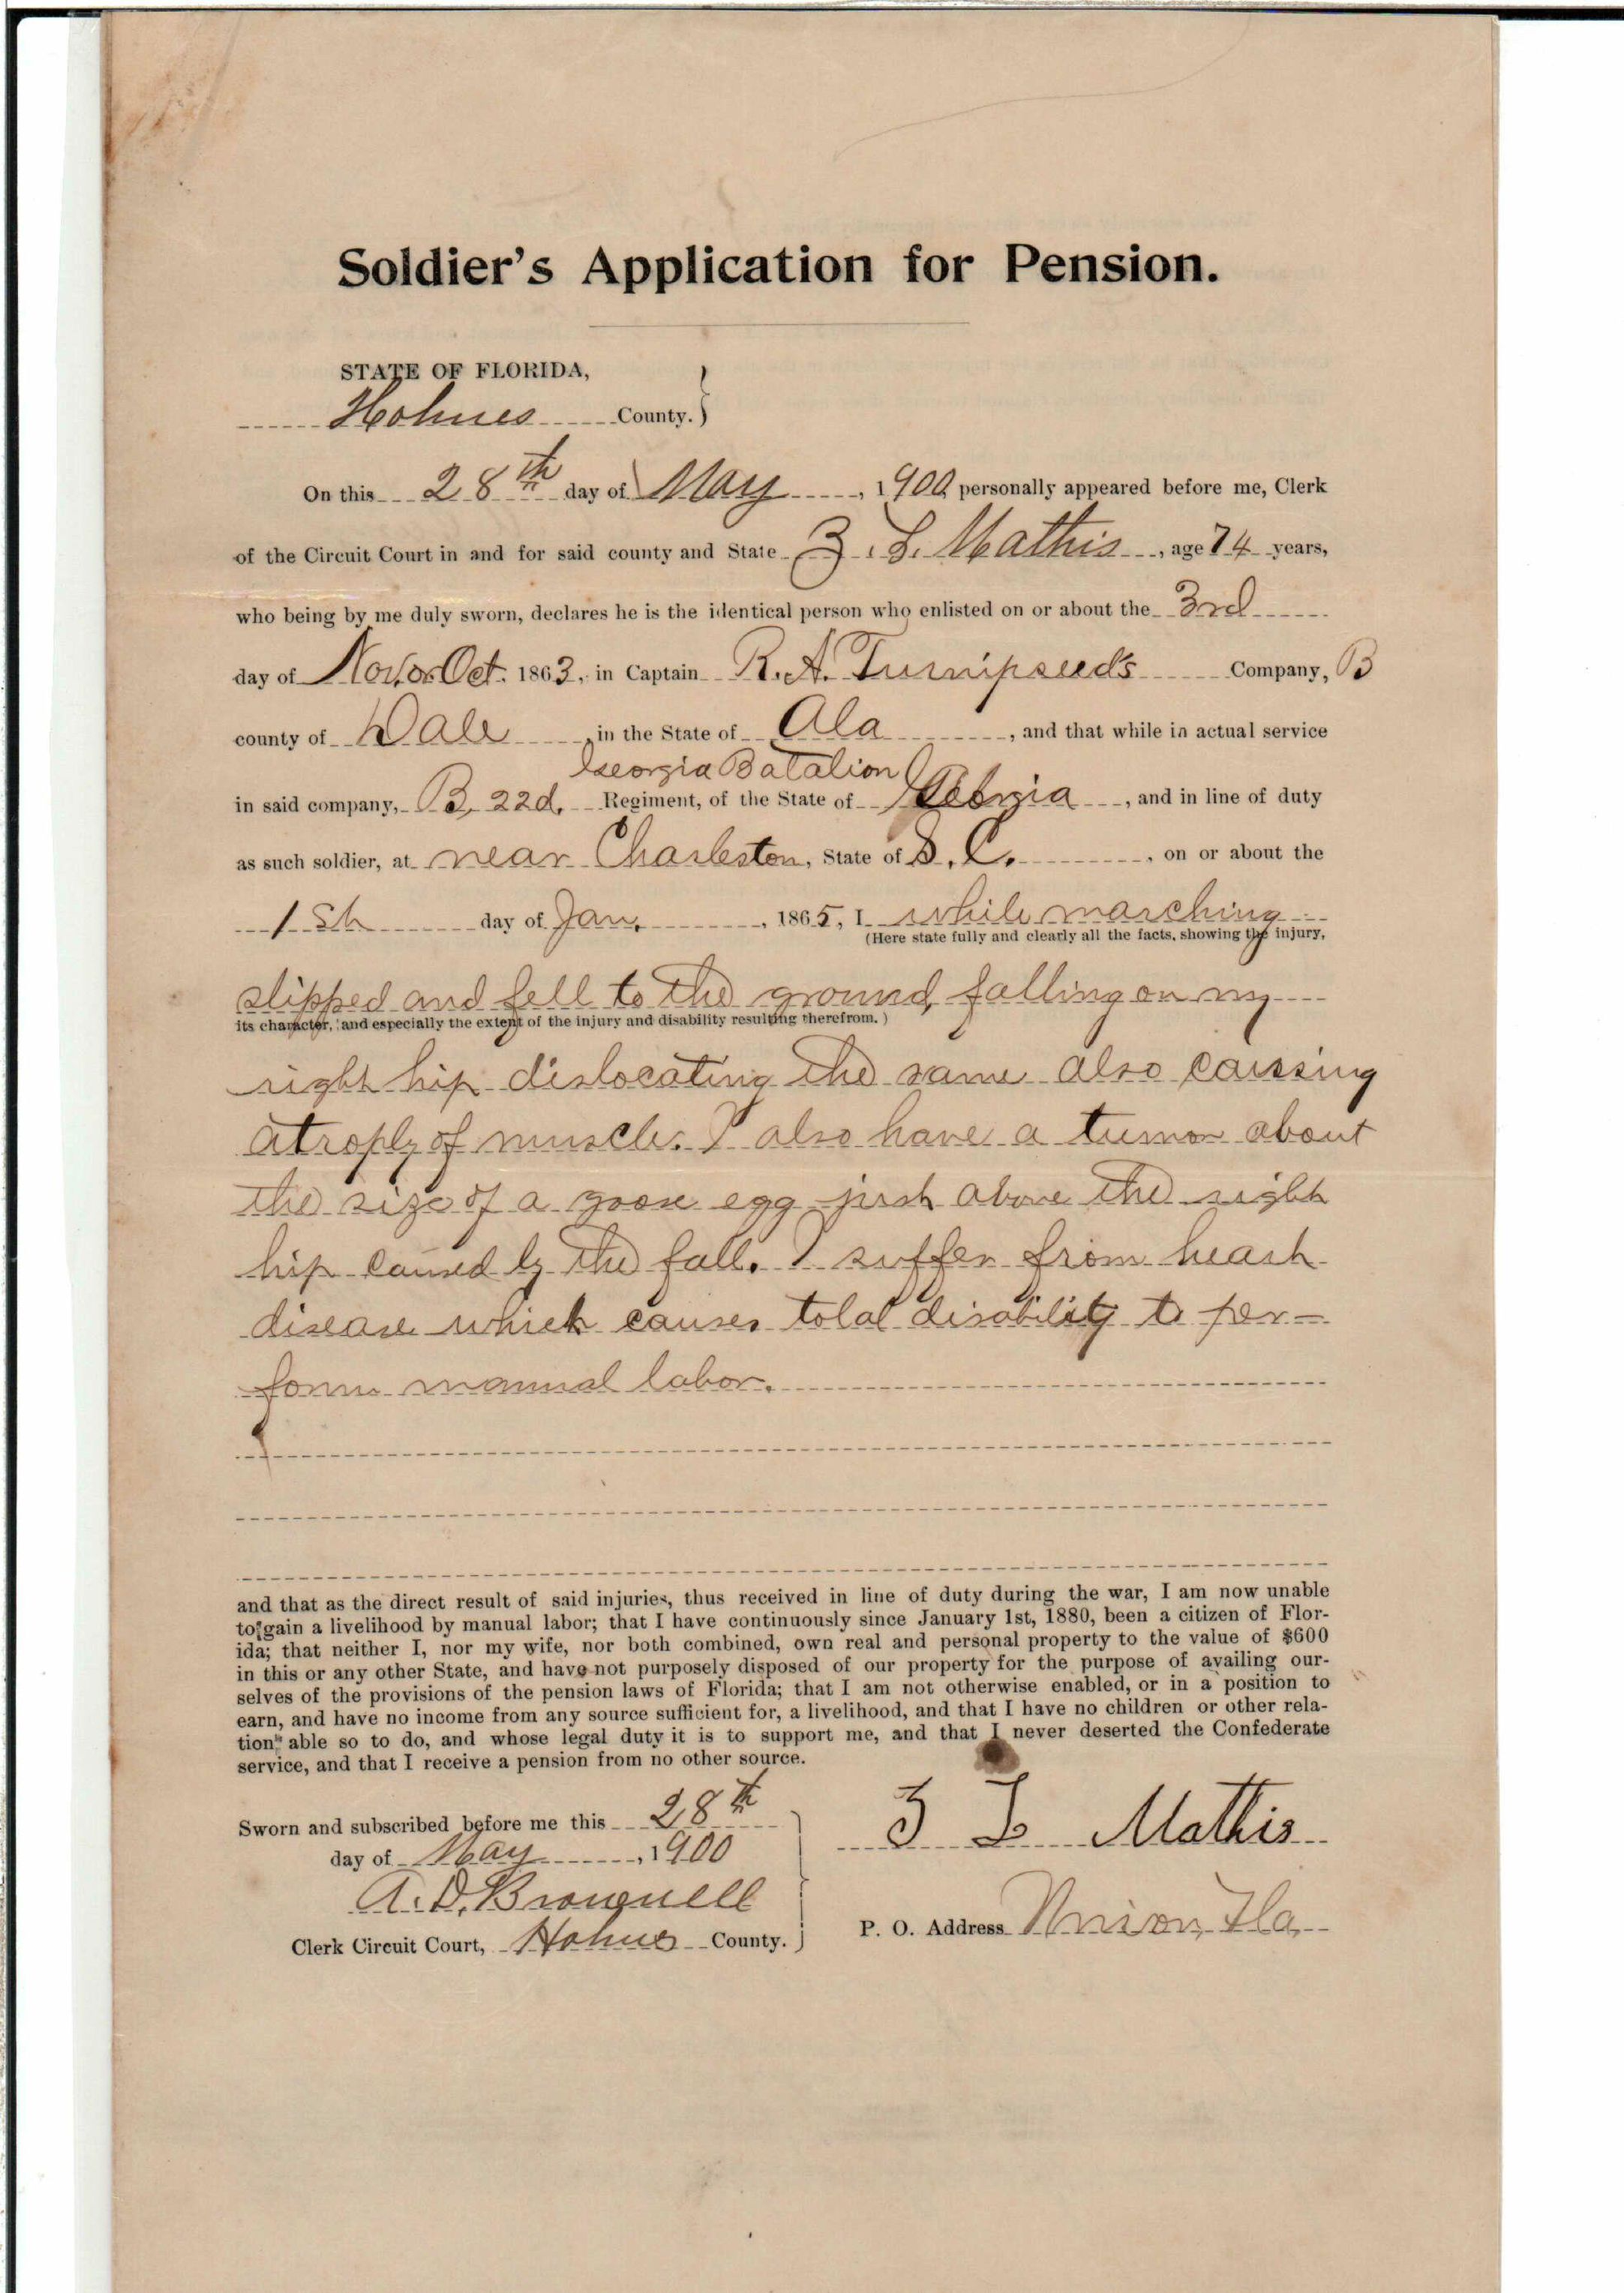 Soldier's Application for Pension.
STATE OF FLORIDA,
Holmes County.
On this 28th day of May, 1900, personally appeared before me, Clerk
of the Circuit Court in and for said county and State Z. L. Mathis, age 74 years,
who being by me duly sworn, declares he is the identical person who enlisted on or about the 3rd
day of Nov. or Oct. 1863, in Captain R. A. Turnipseed's Company, B
county of Dale, in the State of Ala, and that while in actual service
Georgia Batalion
in said company, B, 22d. Regiment, of the State of Georgia, and in line of duty
as such soldier, at near Charleston, State of S. C., on or about the
1st day of Jan, 1865, I while marching
(Here state fully and clearly all the facts, showing the injury,
slipped and fell to the ground, falling on my
its character, and especially the extent of the injury and disability resulting therefrom.)
right hip dislocating the same also causing
atrophy of muscle. I also have a tumor about
the size of a goose egg just above the right
hip caused by the fall. I suffer from heart
disease which causes total disability to per-
form manual labor.
and that as the direct result of said injuries, thus received in line of duty during the war, I am now unable
to gain a livelihood by manual labor; that I have continuously since January 1st, 1880, been a citizen of Flor-
ida; that neither I, nor my wife, nor both combined, own real and personal property to the value of $600
in this or any other State, and have not purposely disposed of our property for the purpose of availing our-
selves of the provisions of the pension laws of Florida; that I am not otherwise enabled, or in a position to
earn, and have no income from any source sufficient for, a livelihood, and that I have no children or other rela-
tion able so to do, and whose legal duty it is to support me, and that I never deserted the Confederate
service, and that I receive a pension from no other source.
Sworn and subscribed before me this 28th
day of May, 1900
Z L Mathis
A. D. Brownell
Clerk Circuit Court, Holmes County.
P. O. Address Union, Fla,